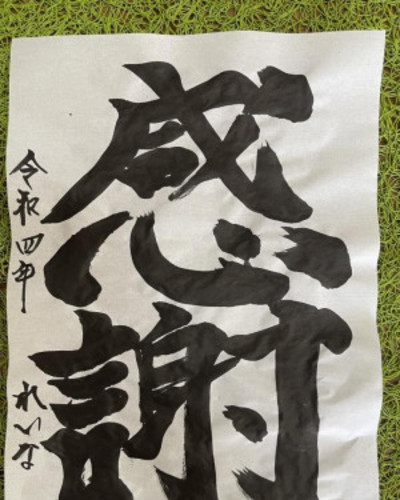 感謝
令和四年 れいな